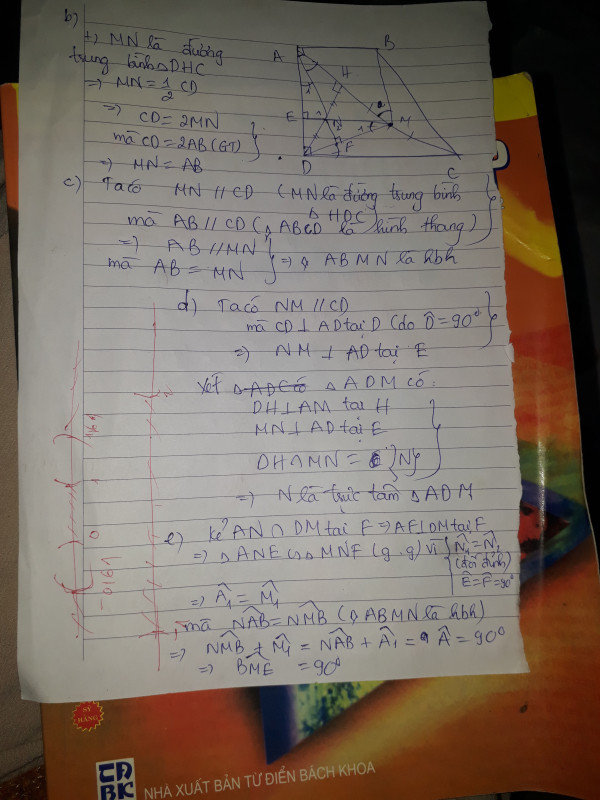 b)
+) MN là đường
trung bình △DHC
=> MN = 1/2 CD
=> CD = 2MN
mà CD = 2AB (GT)
=> MN = AB
A
B
H
E
N
M
F
D
C
c) Ta có MN // CD (MN là đường trung bình
△ HDC)
mà AB // CD (◊ ABCD là hình thang)
=> AB // MN
mà AB = MN
=> ◊ ABMN là hbh
d) Ta có NM // CD
mà CD ⊥ AD tại D (do D̂ = 90°)
=> NM ⊥ AD tại E
Xét △ ADM có:
DH ⊥ AM tại H
MN ⊥ AD tại E
DH ∩ MN = {N}
=> N là trực tâm △ ADM
e) Kẻ AN ∩ DM tại F => AF ⊥ DM tại F
=> △ ANE ∽ △ MNF (g.g) vì
N̂₁ = N̂₁
(đối đỉnh)
Ê = F̂ = 90°
=> Â₁ = M̂₁
mà NAB = NMB (◊ ABMN là hbh)
=> NMB + M̂₁ = NAB + Â₁ = Â = 90°
=> BME = 90°
-0161
SÝ HÀNG
TĐ
BK
NHÀ XUẤT BẢN TỪ ĐIỂN BÁCH KHOA